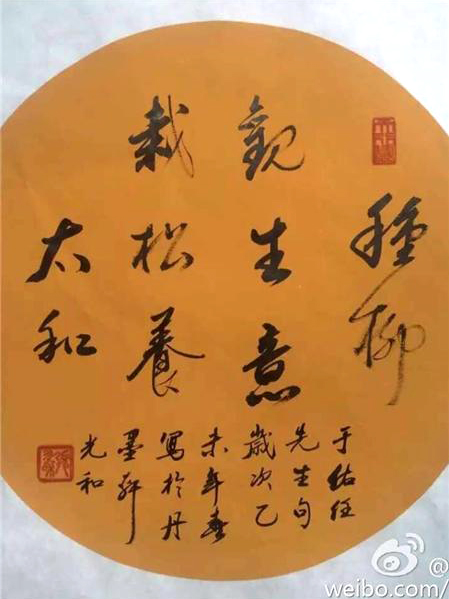 種柳
觀生意
栽松養
太和
于佑任
先生句
歲次乙
未年春
寫於丹
墨軒
光和
@
weibo.com/